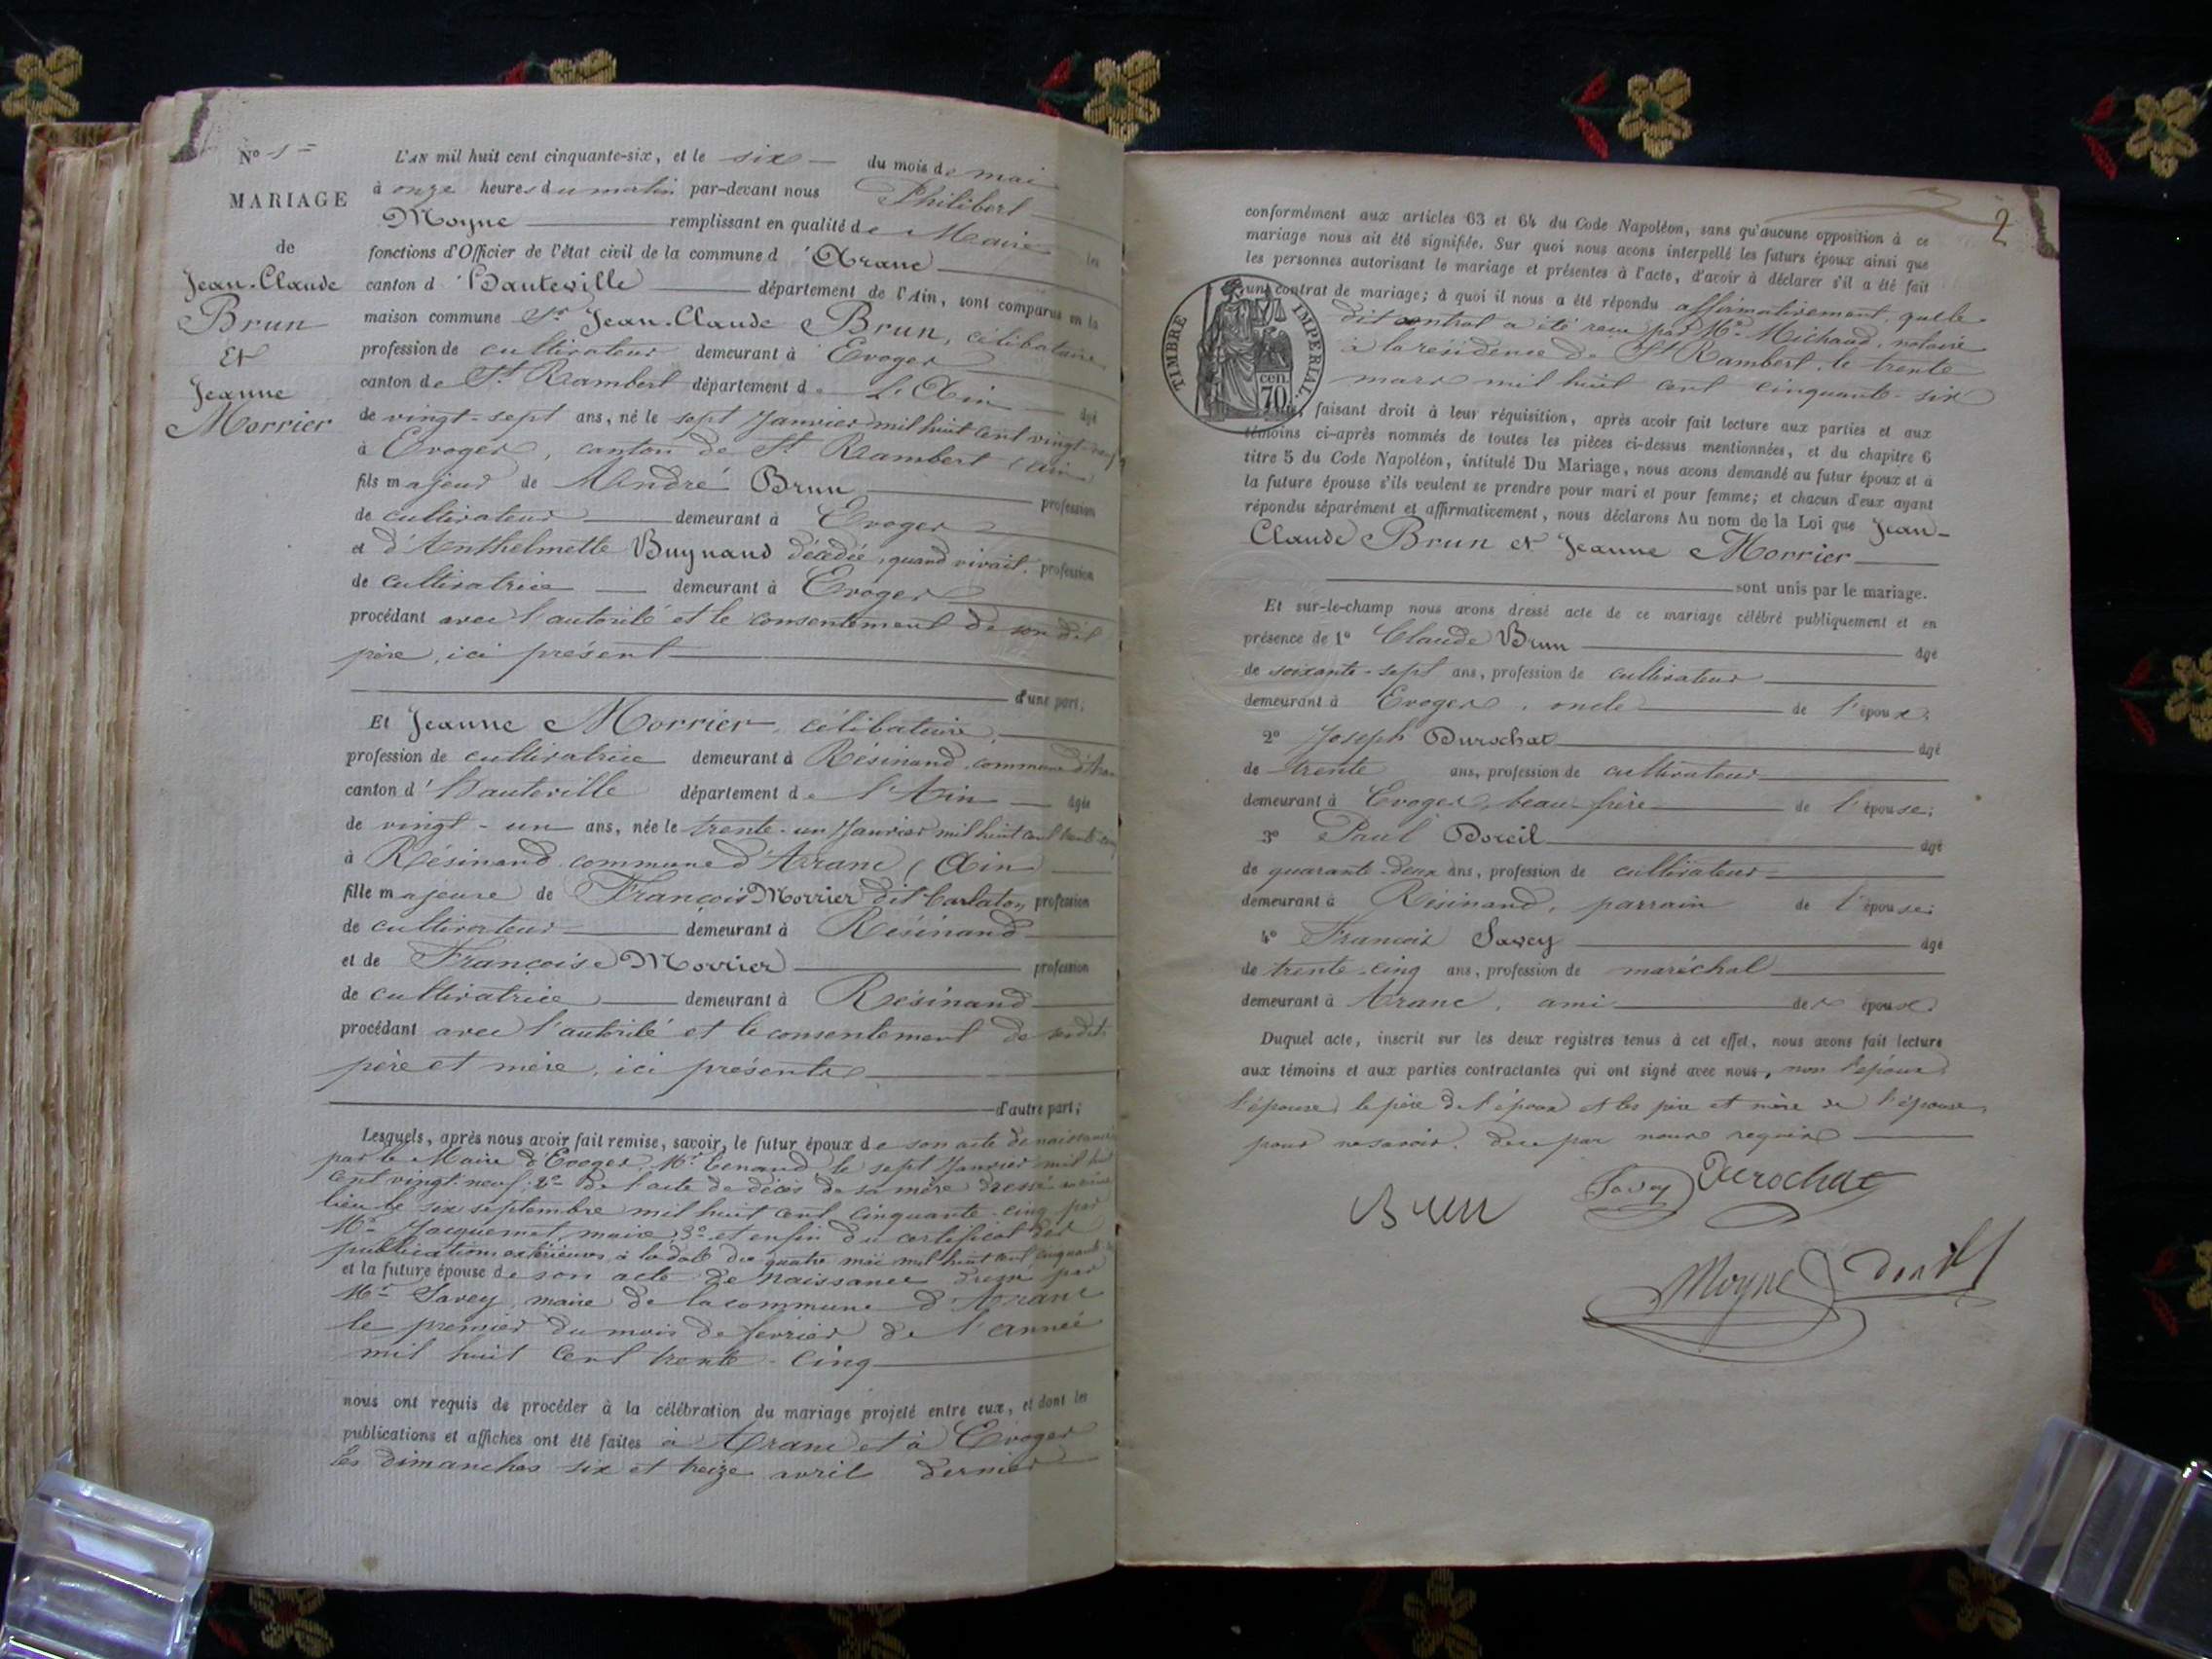 No 1=
MARIAGE
de
Jean-Claude
Brun
Et
Jeanne
Morrier
L'AN mil huit cent cinquante-six, et le six du mois de mai
à onze heures du matin par-devant nous Philibert
Moyne remplissant en qualité de Maire les
fonctions d'Officier de l'état civil de la commune d'Aranc
canton d'Hauteville département de l'Ain, sont comparus en la
maison commune Sr. Jean-Claude Brun, célibataire
profession de cultivateur demeurant à Evoges
canton de St Rambert département de L'Ain âgé
de vingt-sept ans, né le sept Janvier mil huit cent vingt-neuf
à Evoges, canton de St Rambert (Ain)
fils majeur de André Brun profession
de cultivateur demeurant à Evoges
et d'Anthelmette Buynand décédée, quand vivait profession
de cultivatrice demeurant à Evoges
procédant avec l'autorité et le consentement de son dit
père, ici présent
d'une part;
Et Jeanne Morrier, célibataire,
profession de cultivatrice demeurant à Résinand, commune d'Aran
canton d'Hauteville département de l'Ain âgée
de vingt-un ans, née le trente-un Janvier mil huit cent trente-cinq
à Résinand commune d'Aranc (Ain
fille majeure de François Morrier dit Carlaton profession
de cultivateur demeurant à Résinand
et de Françoise Morrier profession
de cultivatrice demeurant à Résinand
procédant avec l'autorité et le consentement de sesdits
père et mère, ici présents
d'autre part;
Lesquels, après nous avoir fait remise, savoir, le futur époux de son acte de naissance
par le Maire d'Evoges, Mr. le sept Janvier mil huit
cent vingt-neuf; 2° de l'acte de décès de sa mère dressé au même
lieu le six septembre mil huit cent cinquante-cinq par
Mr. Jacquemet, maire, 3° et enfin du certificat des
publications extérieures à la date du quatre mai mil huit cent cinquante
et la future épouse de son acte de naissance dressé par
Mr. Savey, maire de la commune d'Aranc
le premier du mois de février de l'année
mil huit cent trente-cinq
nous ont requis de procéder à la célébration du mariage projeté entre eux, et dont les
publications et affiches ont été faites à Aranc et à Evoges
les dimanches six et treize avril dernier
2
conformément aux articles 63 et 64 du Code Napoléon, sans qu'aucune opposition à ce
mariage nous ait été signifiée. Sur quoi nous avons interpellé les futurs époux ainsi que
les personnes autorisant le mariage et présentes à l'acte, d'avoir à déclarer s'il a été fait
un contrat de mariage; à quoi il nous a été répondu affirmativement, que le
dit contrat a été reçu par Me. Michaud, notaire
à la résidence de St Rambert, le trente
mars mil huit cent cinquante-six
TIMBRE IMPERIAL.
cen.
70
faisant droit à leur réquisition, après avoir fait lecture aux parties et aux
témoins ci-après nommés de toutes les pièces ci-dessus mentionnées, et du chapitre 6
titre 5 du Code Napoléon, intitulé Du Mariage, nous avons demandé au futur époux et à
la future épouse s'ils veulent se prendre pour mari et pour femme; et chacun d'eux ayant
répondu séparément et affirmativement, nous déclarons Au nom de la Loi que Jean-
Claude Brun et Jeanne Morrier
sont unis par le mariage.
Et sur-le-champ nous avons dressé acte de ce mariage célébré publiquement et en
présence de 1° Claude Brun âgé
de soixante-sept ans, profession de cultivateur
demeurant à Evoges, oncle de l'époux;
2° Joseph Durochat âgé
de trente ans, profession de cultivateur
demeurant à Evoges, beau-frère de l'épouse;
3° Paul Doreil âgé
de quarante-deux ans, profession de cultivateur
demeurant à Résinand, parrain de l'épouse;
4° François Savey âgé
de trente-cinq ans, profession de maréchal
demeurant à Aranc, ami des époux
Duquel acte, inscrit sur les deux registres tenus à cet effet, nous avons fait lecture
aux témoins et aux parties contractantes qui ont signé avec nous, non l'époux
l'épouse, le père de l'époux et les père et mère de l'épouse,
pour ne savoir, de ce par nous requis
Brun Savey Durochat
Moyne Doreil